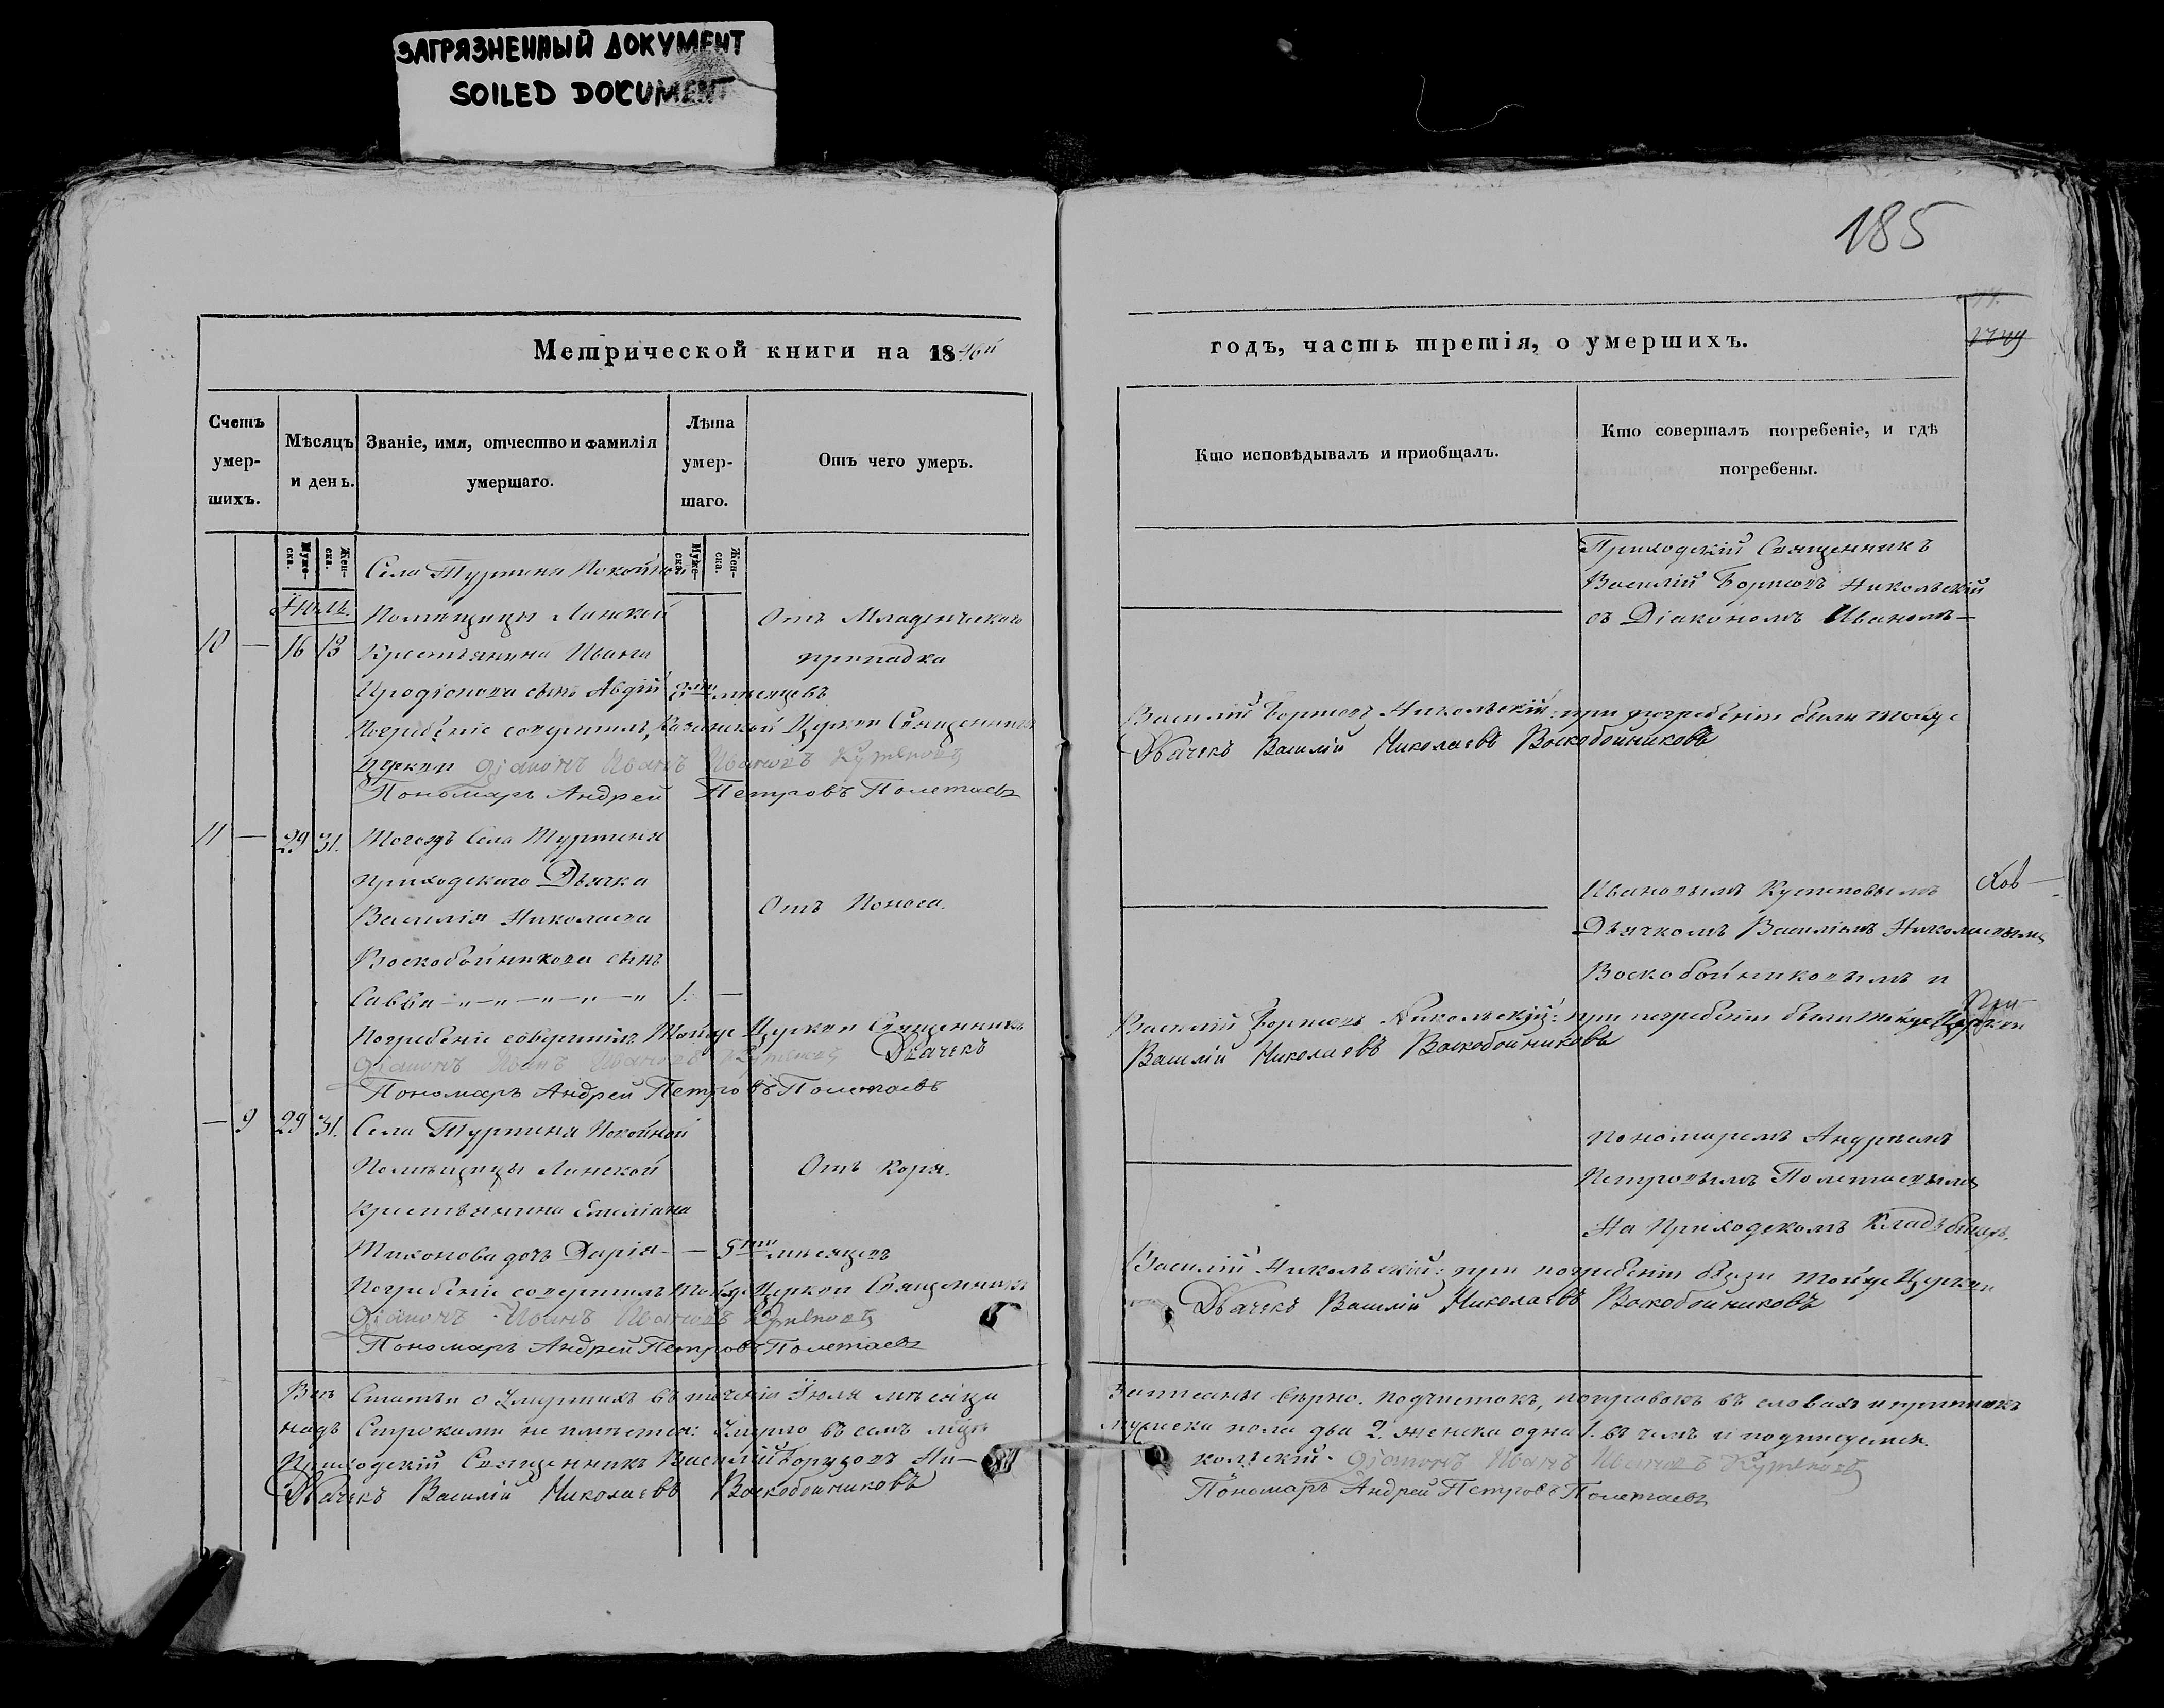 ЗАГРЯЗНЕННЫЙ ДОКУМЕНТ
SOILED DOCUMENT
185
Метрической книги на 1846й
годъ, часть третія, о умершихъ.
Счетъ умер-шихъ.
Мѣсяцъ и день.
Званіе, имя, отчество и фамилія умершаго.
Лѣта умер-шаго.
Отъ чего умеръ.
Кто исповѣдывалъ и приобщалъ.
Кто совершалъ погребеніе, и гдѣ погребены.
Муже-ска.
Жен-ска.
Муже-ска.
Жен-ска.
Іюль
Села Туртеня Покойной
Помѣщицы Ланской
10 — 16 18 Крестьянина Ивана
сынъ Авдій 8ми мѣсяцевъ
Отъ Младенческаго
припадка
Приходскій Священникъ
Василій Борисовъ Никольскій
съ Діакономъ Иваномъ
Погребеніе совершилъ Казанской Церкви Священникъ
Василій Борисовъ Никольскій: при погребеніи были тойже
Церкви Діаконъ Иванъ Ивановъ
Дьячекъ Василій Николаевъ Воскобойниковъ
Пономарь Андрей Петровъ Полетаевъ
11 — 29 31. Тогожъ Села Туртеня
Приходскаго Дьячка
Василія Николаева
Воскобойникова сынъ
Савва — 1. —
Отъ Поноса.
Дьячкомъ Василіемъ Николаевымъ
Воскобойниковымъ и
Погребеніе совершилъ Тойже Церкви Священникъ
Василій Борисовъ Никольскій: при погребеніи были тойже Церкви
Діаконъ Иванъ Ивановъ Дьячекъ
Василій Николаевъ Воскобойниковъ
Пономарь Андрей Петровъ Полетаевъ
— 9 29 31. Села Туртеня Покойной
Помѣщицы Ланской
Крестьянина Емеліана
Тихонова дочь Дарія — 5ти мѣсяцевъ
Отъ Коря.
Пономаремъ Андреемъ
Петровымъ Полетаевымъ
На Приходскомъ Кладбищѣ.
Погребеніе совершилъ Тойже Церкви Священникъ
Василій Никольскій: при погребеніи были тойже Церкви
Діаконъ Иванъ Ивановъ
Дьячекъ Василій Николаевъ Воскобойниковъ
Пономарь Андрей Петровъ Полетаевъ
Всѣ Статьи о Умершихъ въ теченіи Іюля мѣсяца
Записаны вѣрно. Подчистокъ, поправокъ въ словахъ и приписокъ
надъ Строками не имѣется: Умерло въ семъ мѣсяцѣ
мужеска пола два 2. женска одна 1. въ чемъ и подписуемся.
Приходскій Священникъ Василій Борисовъ Ни-
кольскій. Діаконъ Иванъ Ивановъ
Дьячекъ Василій Николаевъ Воскобойниковъ
Пономарь Андрей Петровъ Полетаевъ